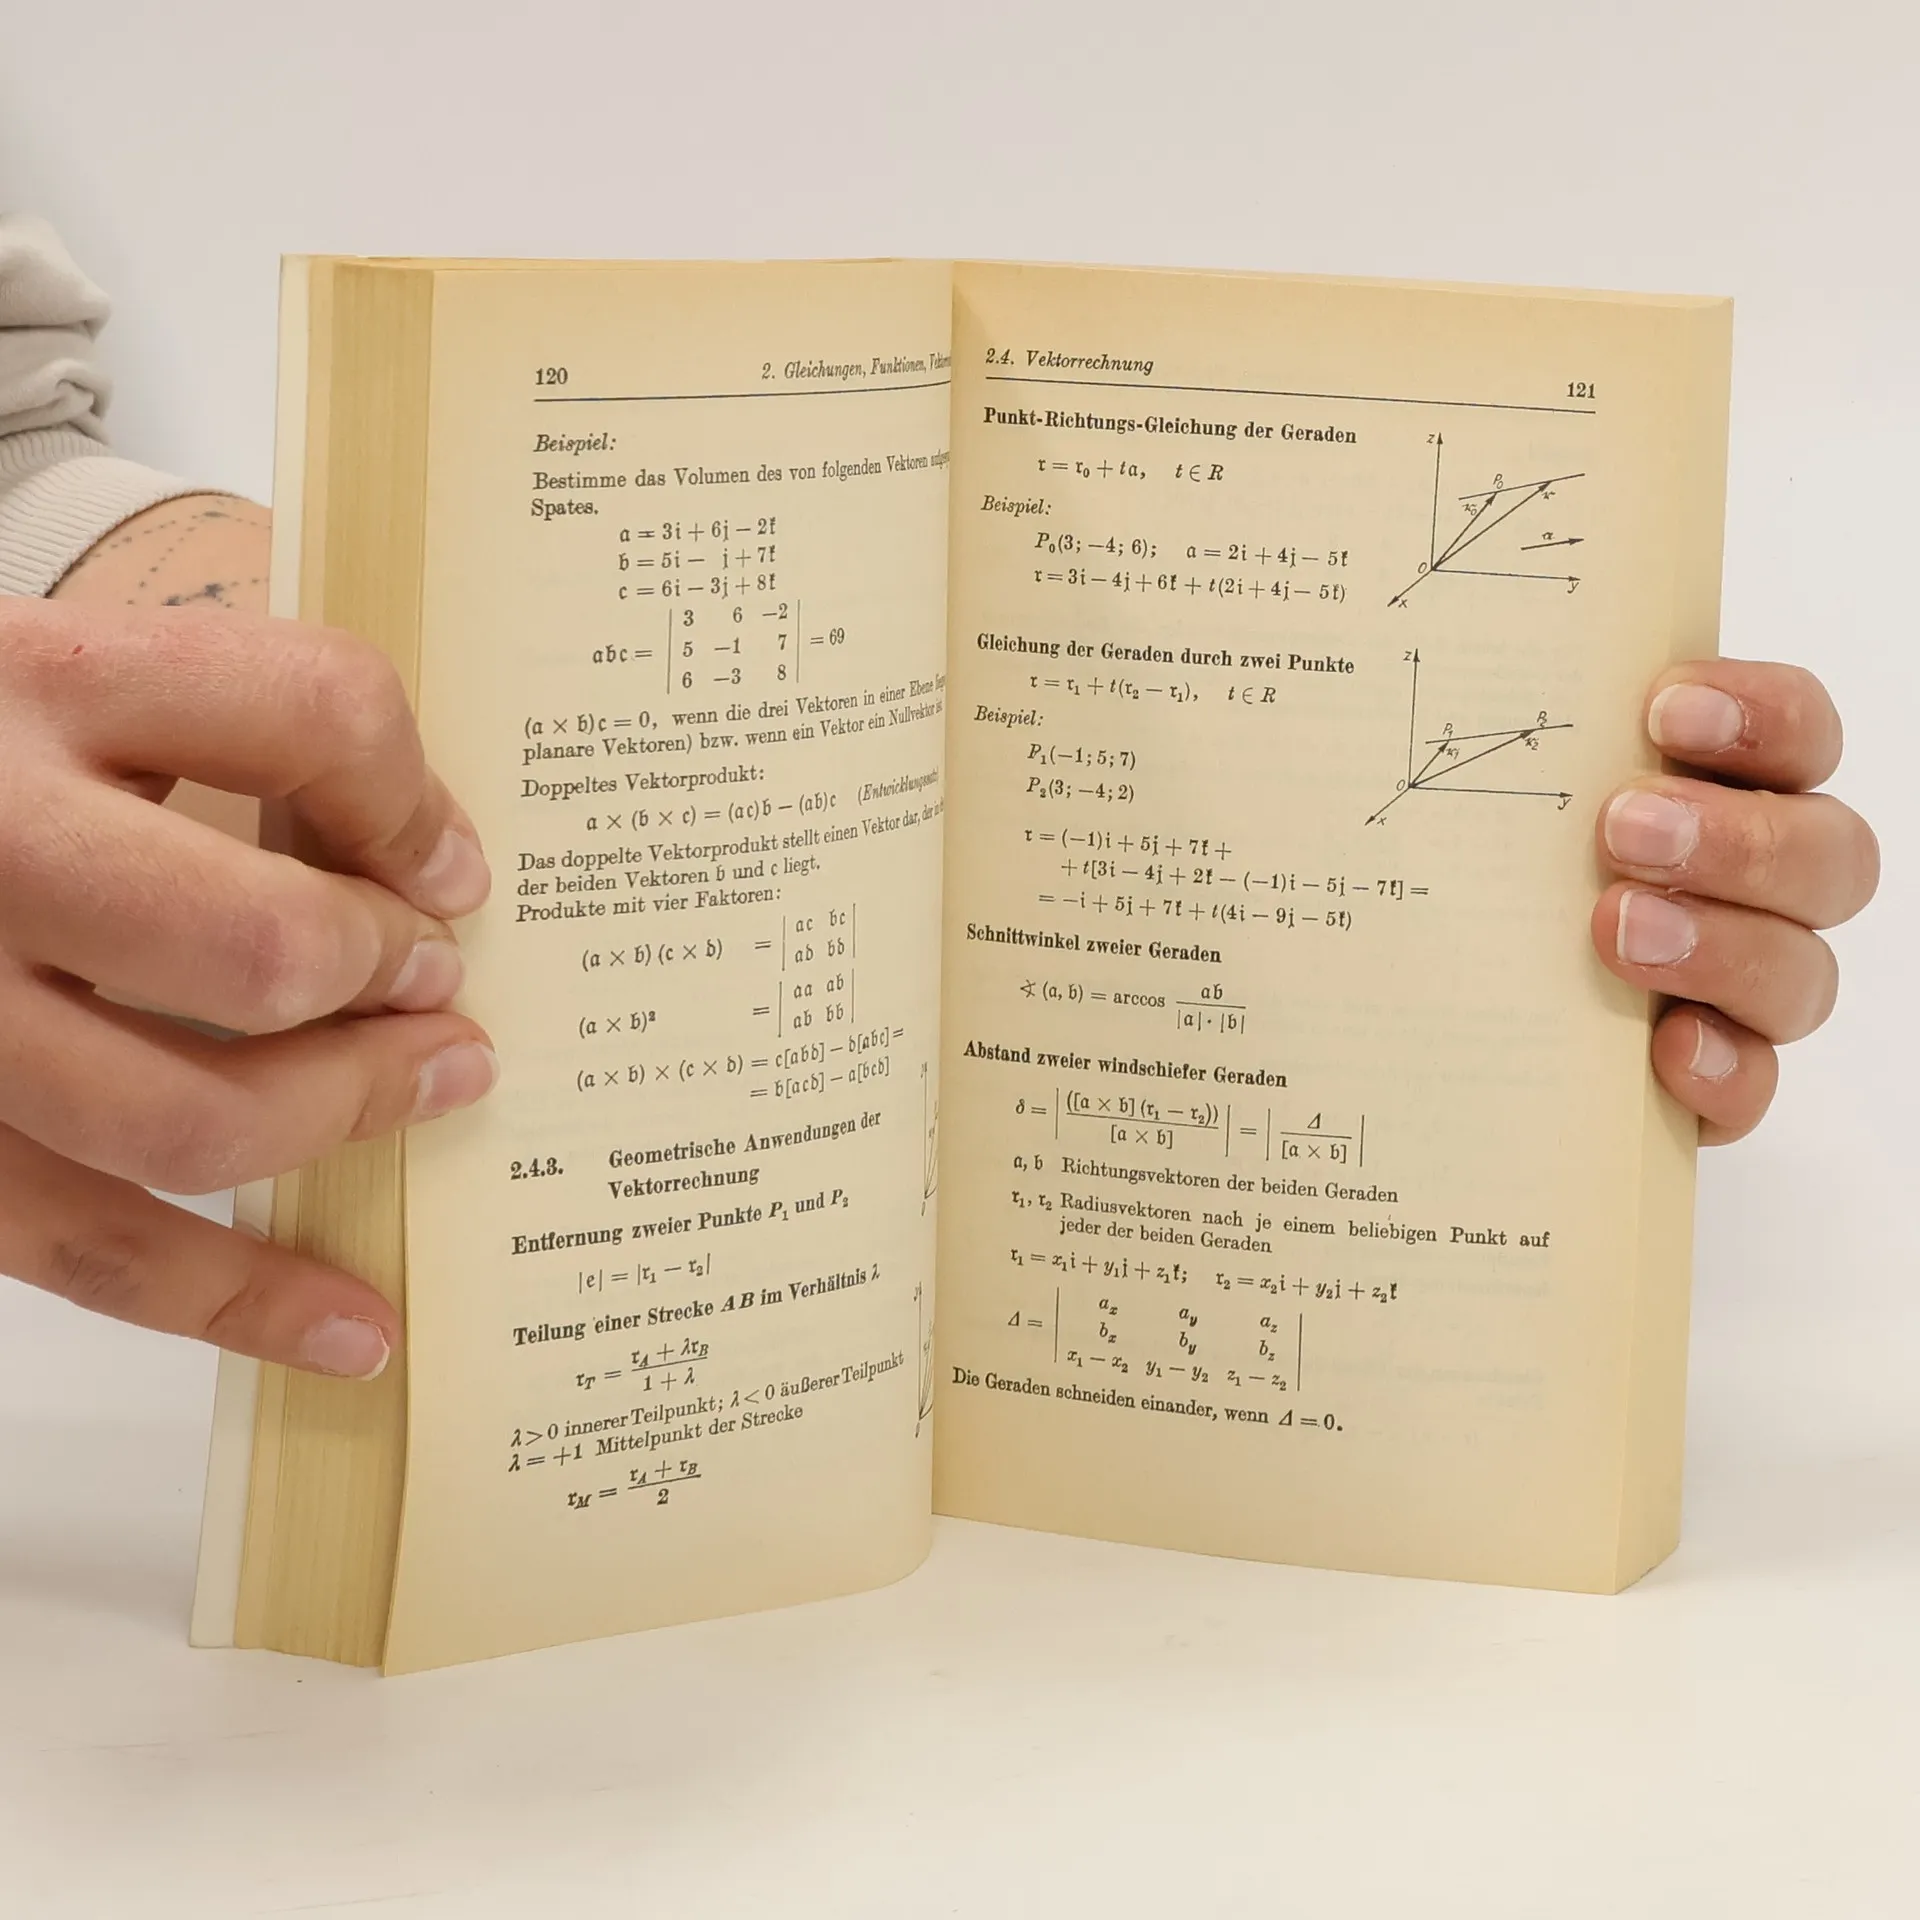 120
2. Gleichungen, Funktionen,
Beispiel:
Bestimme das Volumen des von folgenden Vektoren
Spates.
𝔞 = 3𝔦 + 6𝔧 − 2𝔨
𝔟 = 5𝔦 − 𝔧 + 7𝔨
𝔠 = 6𝔦 − 3𝔧 + 8𝔨
3 6 −2
𝔞𝔟𝔠 = | 5 −1 7 | = 69
6 −3 8
(𝔞 × 𝔟)𝔠 = 0, wenn die drei Vektoren in einer Ebene
planare Vektoren) bzw. wenn ein Vektor ein Nullvektor ist
Doppeltes Vektorprodukt:
𝔞 × (𝔟 × 𝔠) = (𝔞𝔠)𝔟 − (𝔞𝔟)𝔠
Das doppelte Vektorprodukt stellt einen Vektor dar, der in
der beiden Vektoren 𝔟 und 𝔠 liegt.
Produkte mit vier Faktoren:
(𝔞 × 𝔟) (𝔠 × 𝔡) = | 𝔞𝔠 𝔟𝔠 |
| 𝔞𝔡 𝔟𝔡 |
(𝔞 × 𝔟)² = | 𝔞𝔞 𝔞𝔟 |
| 𝔞𝔟 𝔟𝔟 |
(𝔞 × 𝔟) × (𝔠 × 𝔡) = 𝔠[𝔞𝔟𝔡] − 𝔡[𝔞𝔟𝔠] =
= 𝔟[𝔞𝔠𝔡] − 𝔞[𝔟𝔠𝔡]
2.4.3. Geometrische Anwendungen der
Vektorrechnung
Entfernung zweier Punkte P₁ und P₂
|𝔢| = |𝔯₁ − 𝔯₂|
Teilung einer Strecke AB im Verhältnis λ
𝔯_T = (𝔯_A + λ𝔯_B) / (1 + λ)
λ > 0 innerer Teilpunkt; λ < 0 äußerer Teilpunkt
λ = +1 Mittelpunkt der Strecke
𝔯_M = (𝔯_A + 𝔯_B) / 2
2.4. Vektorrechnung
121
Punkt-Richtungs-Gleichung der Geraden
𝔯 = 𝔯₀ + t𝔞, t ∈ R
Beispiel:
P₀(3; −4; 6); 𝔞 = 2𝔦 + 4𝔧 − 5𝔨
𝔯 = 3𝔦 − 4𝔧 + 6𝔨 + t(2𝔦 + 4𝔧 − 5𝔨)
z
P₀
𝔯₀
𝔯
𝔞
O
y
x
Gleichung der Geraden durch zwei Punkte
𝔯 = 𝔯₁ + t(𝔯₂ − 𝔯₁), t ∈ R
Beispiel:
P₁(−1; 5; 7)
P₂(3; −4; 2)
𝔯 = (−1)𝔦 + 5𝔧 + 7𝔨 +
+ t[3𝔦 − 4𝔧 + 2𝔨 − (−1)𝔦 − 5𝔧 − 7𝔨] =
= −𝔦 + 5𝔧 + 7𝔨 + t(4𝔦 − 9𝔧 − 5𝔨)
z
P₁
P₂
𝔯₁
𝔯₂
O
y
x
Schnittwinkel zweier Geraden
∢ (𝔞, 𝔟) = arccos 𝔞𝔟 / (|𝔞| · |𝔟|)
Abstand zweier windschiefer Geraden
δ = | ([𝔞 × 𝔟] (𝔯₁ − 𝔯₂)) / [𝔞 × 𝔟] | = | Δ / [𝔞 × 𝔟] |
𝔞, 𝔟 Richtungsvektoren der beiden Geraden
𝔯₁, 𝔯₂ Radiusvektoren nach je einem beliebigen Punkt auf
jeder der beiden Geraden
𝔯₁ = x₁𝔦 + y₁𝔧 + z₁𝔨; 𝔯₂ = x₂𝔦 + y₂𝔧 + z₂𝔨
a_x a_y a_z
Δ = | b_x b_y b_z |
x₁ − x₂ y₁ − y₂ z₁ − z₂
Die Geraden schneiden einander, wenn Δ = 0.